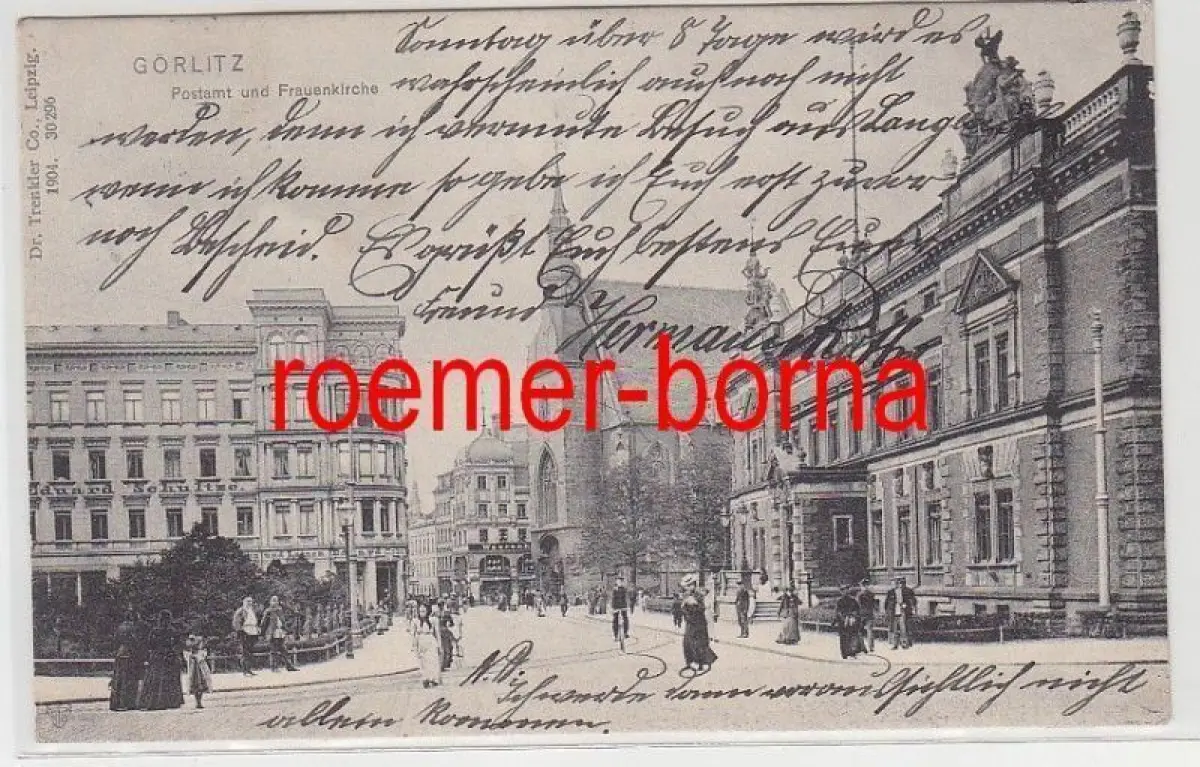 Sonntag über 8 Tage wird es
GÖRLITZ
wahrscheinlich auch noch nicht
Postamt und Frauenkirche
werden, denn ich vermute Besuch aus
wenn ich komme so gebe ich Euch erst zuvor
noch Bescheid. Es grüßt Euch bestens Euer
Freund Hermann
roemer-borna
N.B.
Ich werde dann voraussichtlich nicht
allein kommen.
Dr. Trenkler Co., Leipzig.
1904. 30296